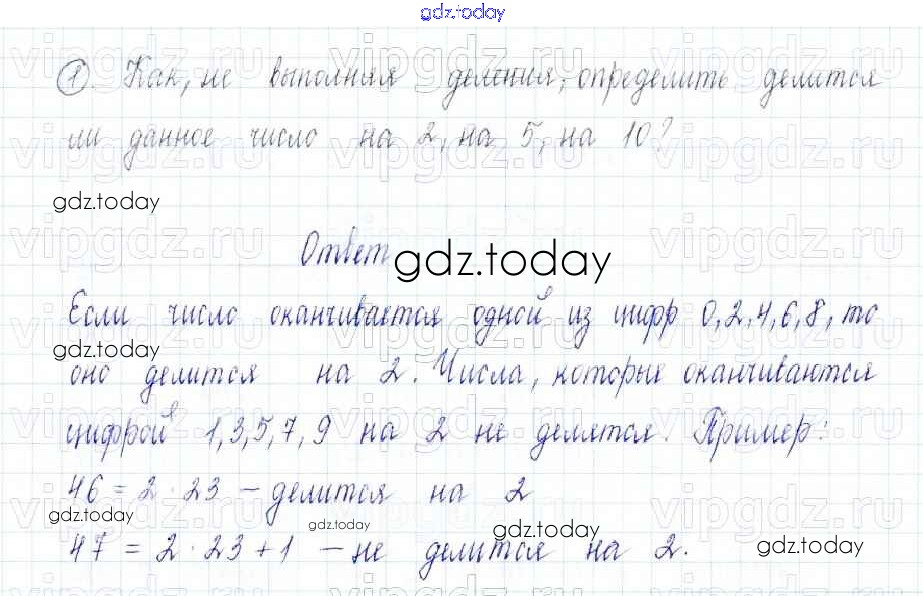 gdz.today
① Как, не выполняя деления, определить делится
ли данное число на 2, на 5, на 10?
gdz.today
Ответ
gdz.today
Если число оканчивается одной из цифр 0, 2, 4, 6, 8, то
gdz.today
оно делится на 2. Числа, которые оканчиваются
цифрой 1, 3, 5, 7, 9 на 2 не делятся. Пример:
46 = 2 · 23 – делится на 2
gdz.today gdz.today gdz.today gdz.today
47 = 2 · 23 + 1 – не делится на 2.
vipgdz.ru vipgdz.ru vipgdz.ru